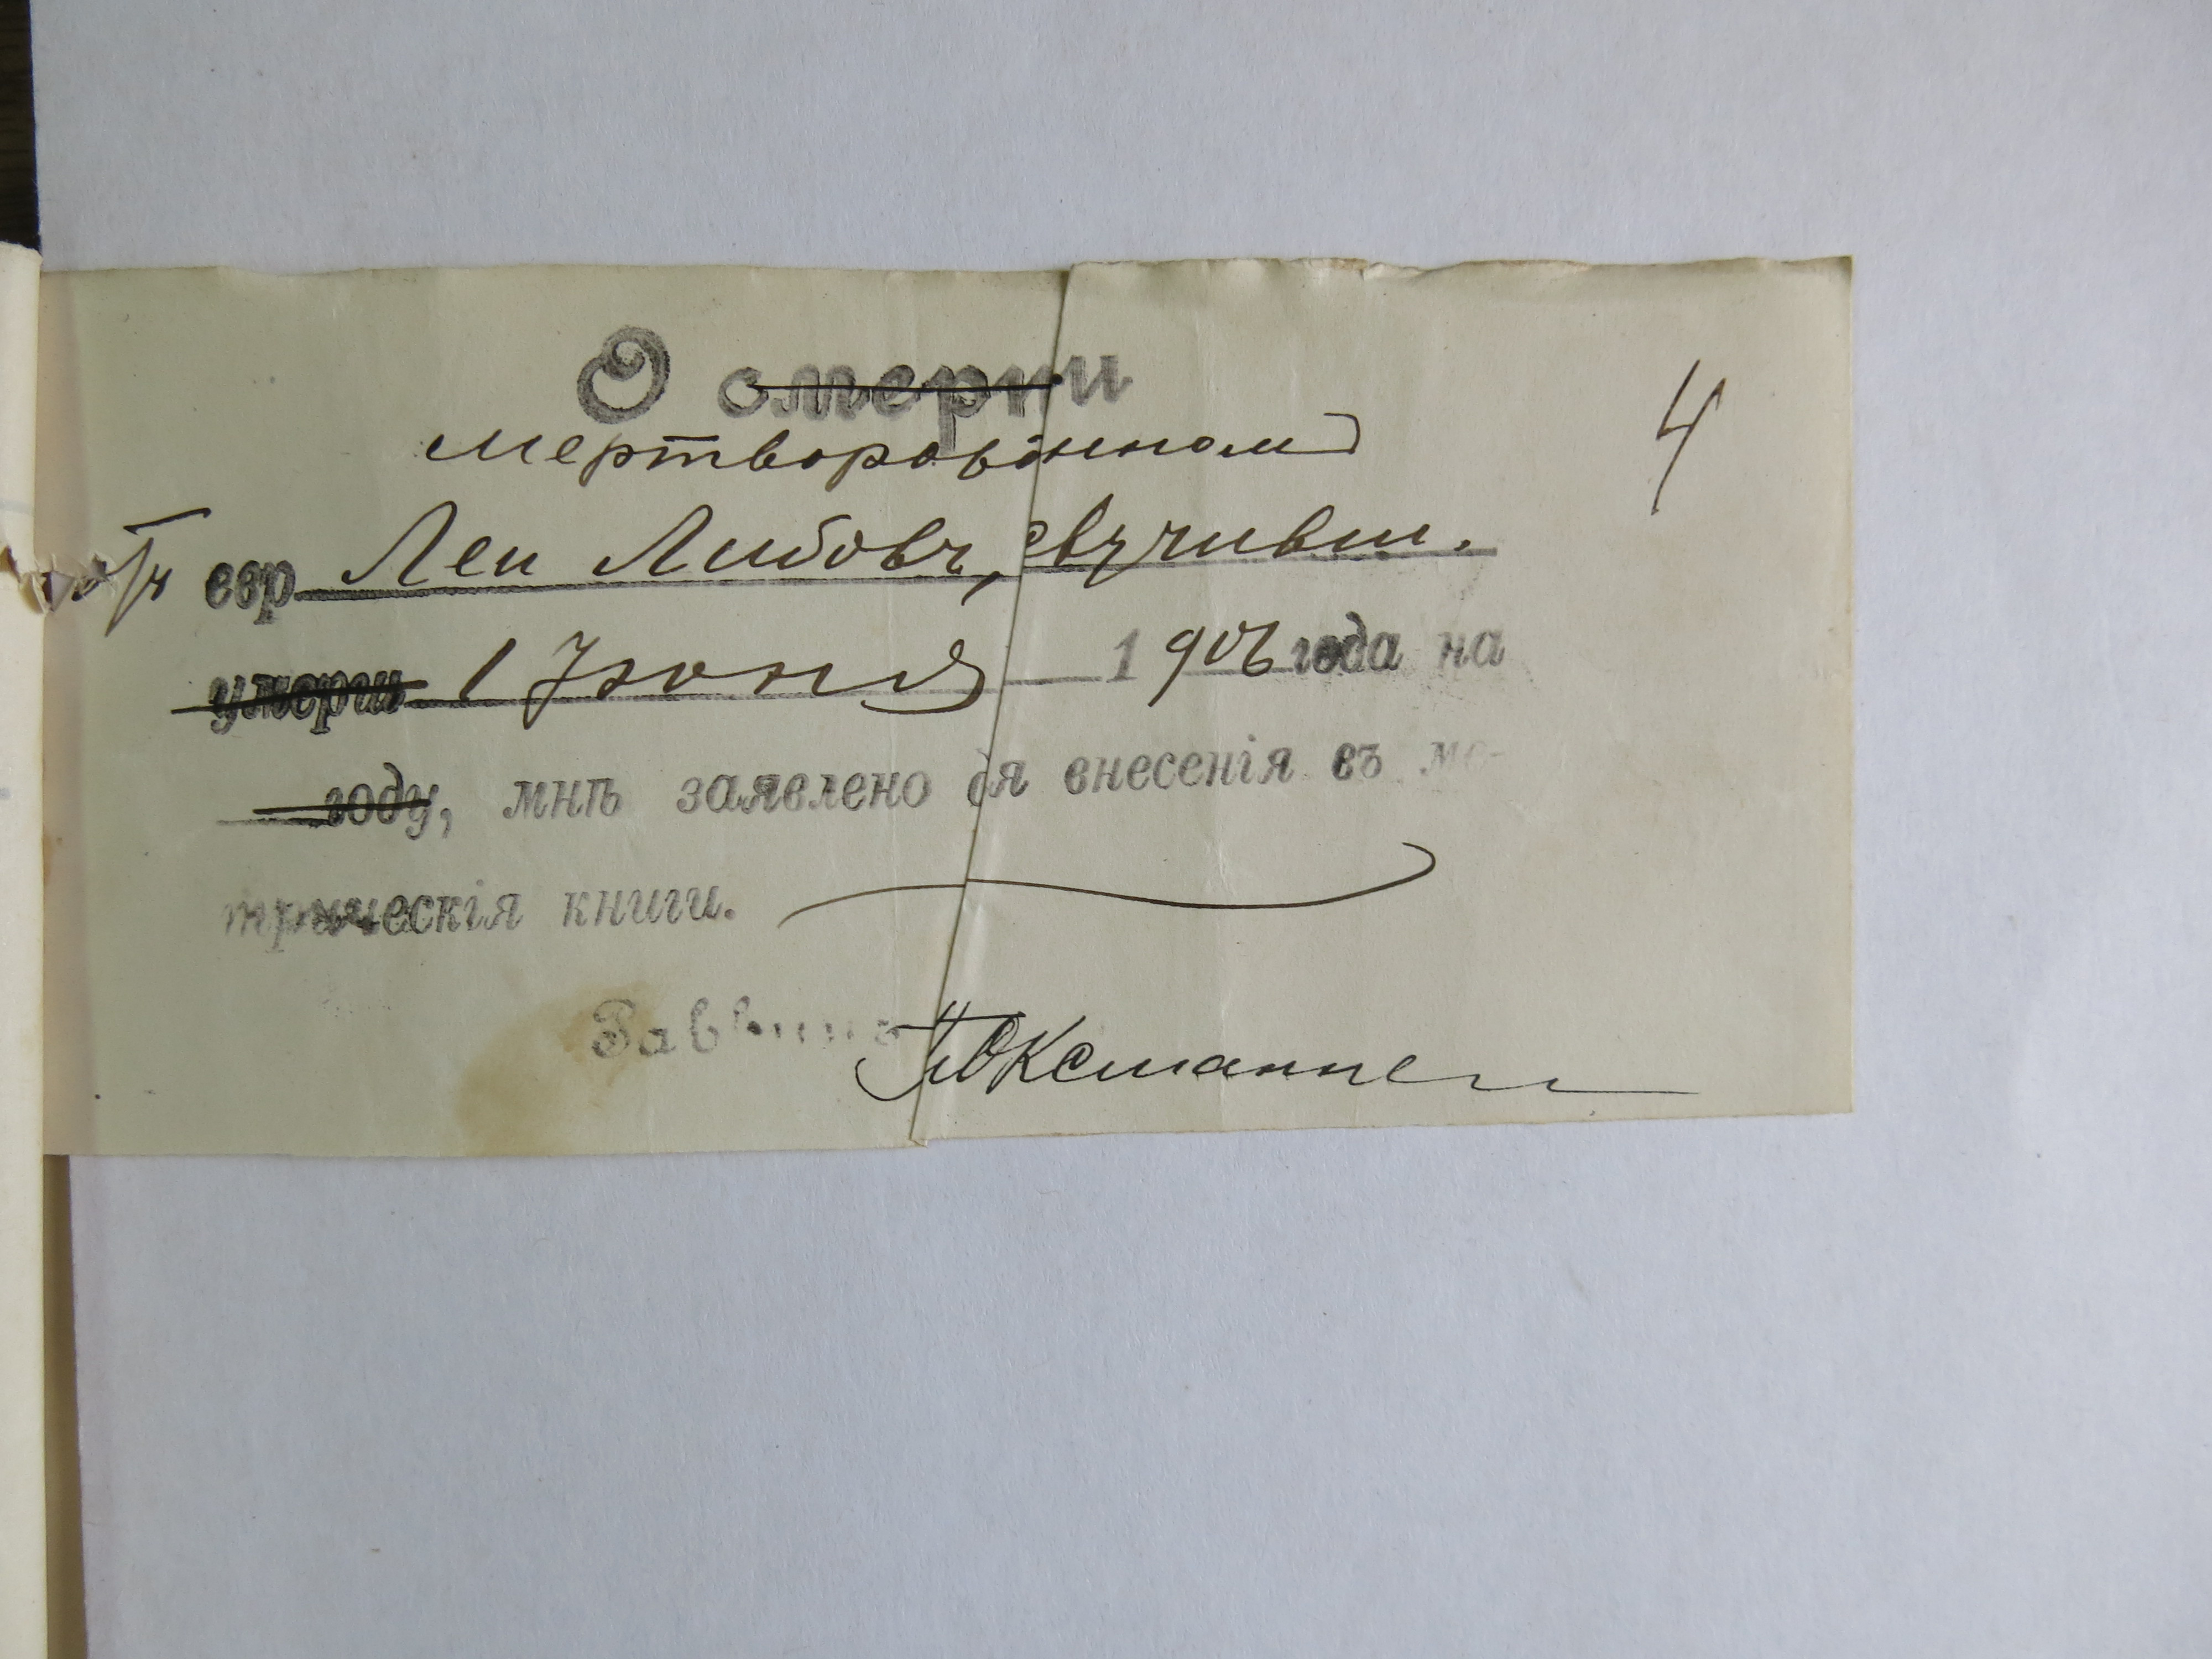 О смерти
4
мертворожденномъ
евр Леи Либовъ, случивш.
умерш 1 Іюня 1906 года на
году, мнѣ заявлено для внесенія въ ме-
трическія книги.
Раввинъ